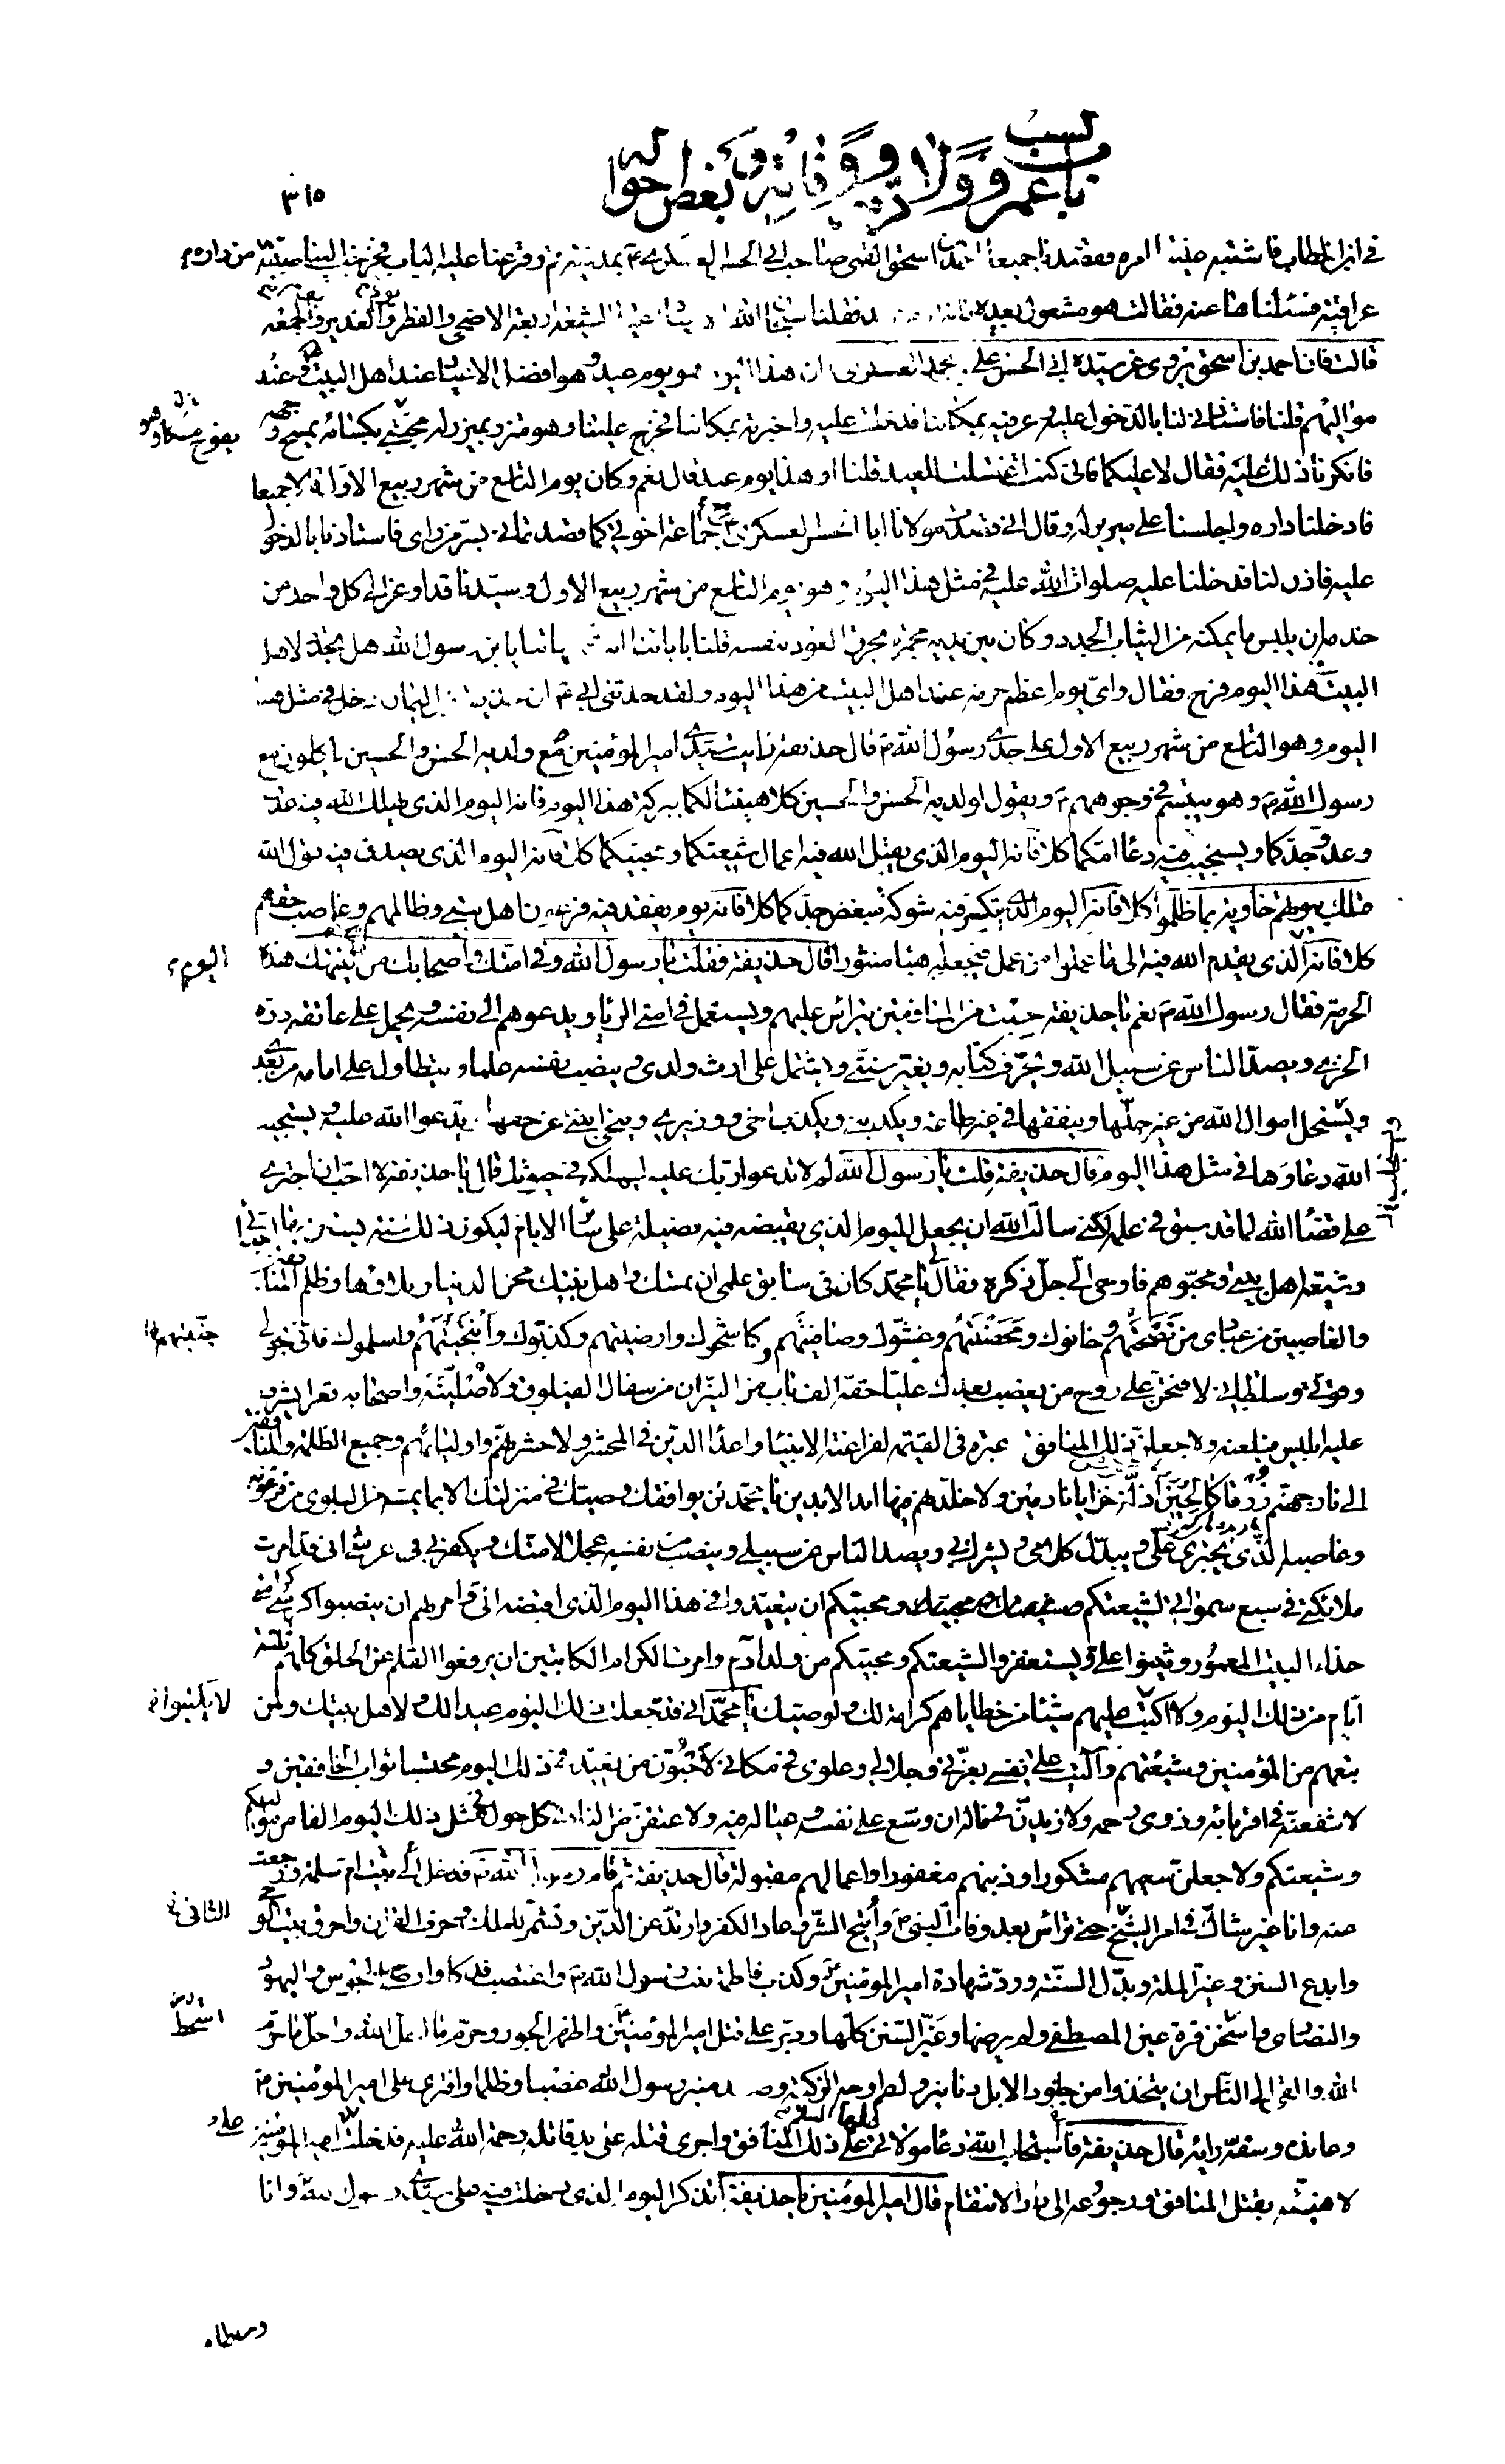 باب نسب عمر وولادته ووفاته وبعض احواله
٣١٥
في ابن الخطاب فاشتبه علينا امره فقصدنا جميعا احمد بن اسحق القمي صاحب ابي الحسن العسكري ع بمدينة قم وقرعنا عليه الباب فخرجت الينا صبية من داره
عراقية فسئلناها عنه فقالت هو مشغول بعيده فانه يوم عيد فقلنا سبحان الله الاعياد عند الشيعة اربعة الاضحى والفطر ويوم الغدير ويوم الجمعة
قالت فان احمد بن اسحق يروي عن سيده ابي الحسن علي بن محمد العسكري ان هذا اليوم هو يوم عيد وهو افضل الاعياد عند اهل البيت وعند
مواليهم قلنا فاستاذني لنا بالدخول عليه وعرفيه بمكاننا فدخلت عليه واخبرته بمكاننا فخرج علينا وهو متزر بميزر له محتبي بكسائه يمسح وجهه
يفوح مسكا وهو
فانكرنا ذلك عليه فقال لا عليكما فاني كنت اغتسلت للعيد قلنا او هذا يوم عيد قال نعم وكان يوم التاسع من شهر ربيع الاول قالا جميعا
فادخلنا داره واجلسنا على سرير له وقال اني قصدت مولانا ابا الحسن العسكري ع مع جماعة اخوتي كما قصدتماني بسر من راى فاستاذنا بالدخول
عليه فاذن لنا فدخلنا عليه صلوات الله عليه في مثل هذا اليوم وهو يوم التاسع من شهر ربيع الاول وسيدنا قد اوعز الى كل واحد من
خدمه ان يلبس ما يمكنه من الثياب الجدد وكان بين يديه مجمرة يحرق العود بنفسه قلنا بابائنا انت وامهاتنا يا بن رسول الله هل تجدد لاهل
البيت هذا اليوم فرح فقال واي يوم اعظم حرمة عند اهل البيت من هذا اليوم ولقد حدثني ابي ع ان حذيفة بن اليمان دخل في مثل هذا
اليوم وهو التاسع من شهر ربيع الاول على جدي رسول الله ص قال حذيفة رايت سيدي امير المؤمنين مع ولديه الحسن والحسين ياكلون مع
رسول الله ص وهو يتبسم في وجوههم ع ويقول لولديه الحسن والحسين كلا هنيئا لكما ببركة هذا اليوم فانه اليوم الذي يهلك الله فيه عدوه
وعدو جدكما ويستجيب فيه دعاء امكما كلا فانه اليوم الذي يقبل الله فيه اعمال شيعتكما ومحبيكما كلا فانه اليوم الذي يصدق فيه قول الله
فتلك بيوتهم خاوية بما ظلموا كلا فانه اليوم الذي يتكسر فيه شوكة مبغض جدكما كلا فانه يوم يفقد فيه فرعون اهل بيتي وظالمهم وغاصب حقهم
كلا فانه الذي يقدم الله فيه الى ما عملوا من عمل فيجعله هباء منثورا قال حذيفة فقلت يا رسول الله وفي امتك واصحابك من ينتهك هذه
اليوم
الحرمة فقال رسول الله ص نعم يا حذيفة جبت من المنافقين يتراس عليهم ويستعمل في امتي الرياء ويدعوهم الى نفسه ويحمل على عاتقه درة
الخزي ويصد الناس عن سبيل الله ويحرف كتابه ويغير سنتي ويشتمل على ارث ولدي وينصب نفسه علما ويتطاول على امامه من بعدي
ويستحل اموال الله من غير حلها وينفقها في غير طاعته ويكذبني ويكذب اخي ووزيري وينحي ابنتي عن حقها وتدعوا الله عليه ويستجيب
الله دعاءها في مثل هذا اليوم قال حذيفة قلت يا رسول الله لم لا تدعو ربك عليه ليهلكه في حيوتك قال يا حذيفة لا احب ان اجتري
على قضاء الله لما قد سبق في علمه لكني سالت الله ان يجعل اليوم الذي يقبضه فيه فضيلة على سائر الايام ليكون ذلك سنة يستن بها احبائي
وشيعة اهل بيتي ومحبوهم فاوحى الي جل ذكره فقال لي يا محمد كان في سابق علمي ان تمسك واهل بيتك محن الدنيا وبلاؤها وظلم المنافقين
والغاصبين من عبادي من نصحتهم وخانوك ومحضتهم وغشوك وصافيتهم وكاشحوك وارضيتهم وكذبوك وانتجيتهم واسلموك فاني بحولي
جنبتهم
وقوتي وسلطاني لافتحن على روح من يغصب بعدك عليا حقه الف باب من النيران من سفال الفيلوق ولاصلينه واصحابه قعرا يشرف
عليه ابليس فيلعنه ولاجعلن ذلك المنافق عبرة في القيمة لفراعنة الانبياء واعداء الدين في المحشر ولاحشرنهم واولياءهم وجميع الظلمة والمنافقين
الى نار جهنم زرقا كالحين اذلة خزايا نادمين ولاخلدنهم فيها ابد الابدين يا محمد لن يوافقك وصيك في منزلتك الا بما يمسه من البلوى من فرعونه
وغاصبه الذي يجتري علي ويبدل كلامي ويشرك بي ويصد الناس عن سبيلي وينصب من نفسه عجلا لامتك ويكفر بي في عرشي اني قد امرت
ملائكتي في سبع سمواتي لشيعتكم ومحبيكم ان يتعيدوا في هذا اليوم الذي اقبضه الي وامرتهم ان ينصبوا كرسي كرامتي
حذاء البيت المعمور ويثنوا علي ويستغفروا لشيعتكم ومحبيكم من ولد آدم وامرت الكرام الكاتبين ان يرفعوا القلم عن الخلق كلهم ثلثة
ايام من ذلك اليوم ولا اكتب عليهم شيئا من خطاياهم كرامة لك ولوصيك يا محمد اني قد جعلت ذلك اليوم عيدا لك ولاهل بيتك ولمن
لا يكتبوا
تبعهم من المؤمنين وشيعتهم وآليت على نفسي بعزتي وجلالي وعلوي في مكاني لاحبون من تعيد في ذلك اليوم محتسبا ثواب الخافقين و
لاشفعنه في اقربائه وذوي رحمه ولازيدن في ماله ان وسع على نفسه وعياله فيه ولاعتقن من النار في كل حول في مثل ذلك اليوم الفا من مواليكم
وشيعتكم ولاجعلن سعيهم مشكورا وذنبهم مغفورا واعمالهم مقبولة قال حذيفة ثم قام رسول الله ص فدخل الى بيت ام سلمة ورجعت
عنه وانا غير شاك في امر الشيخ حتى تراس بعد وفات النبي ص واتيح الشر وعاد الكفر وارتد عن الدين وتشمر للملك وحرف القران واحرق بيت الوحي
الثاني
وابدع السنن وغير الملة وبدل السنة ورد شهادة امير المؤمنين ع وكذب فاطمة بنت رسول الله ص واغتصب فدكا وارضى المجوس واليهود
والنصارى واسخن قرة عين المصطفى ولم يرضها وغير السنن كلها ودبر على قتل امير المؤمنين ع واظهر الجور وحرم ما احل الله واحل ما حرم
اسخط
الله والقى الى الناس ان يتخذوا من جلود الابل دنانير ولطم وجه الزكية وصعد منبر رسول الله غصبا وظلما وافترى على امير المؤمنين ع
وعانده وسفه رايه قال حذيفة فاستجاب الله دعاء مولاتي عليها السلام على ذلك المنافق واجرى قتله على يد قاتله رحمة الله عليه فدخلت على امير المؤمنين
لاهنيه بقتل المنافق ورجوعه الى دار الانتقام قال امير المؤمنين يا حذيفة اتذكر اليوم الذي دخلت فيه على سيدي رسول الله وانا
وسبطاه